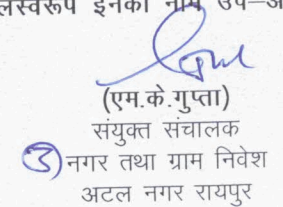 लस्वरूप इनका नाम उप–अ
(एम.के.गुप्ता)
संयुक्त संचालक
3 नगर तथा ग्राम निवेश
अटल नगर रायपुर